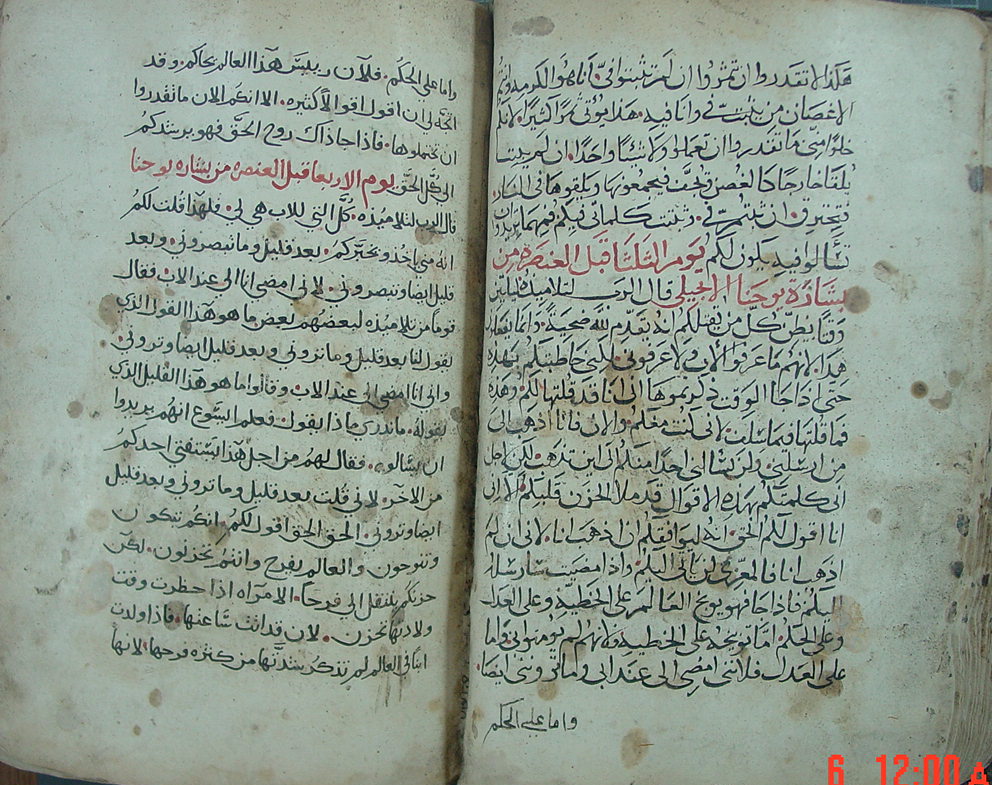 هكذا لا تقدروا ان تمثروا ان لم تثبتوا فيّ. انا هوا الكرمه وانتم
الاغصان من يثبت فيّ وانا فيه. هذا يوتي ثمرًا كثيرًا. لانكم
خلوا مني ما تقدروا ان تعملوا ولا شيًا واحدًا. ان لم يثبت
يلقا خارجًا كالغصن ويجف فيجمعونها ويلقوها في النار.
فتحترق. ان ثبتم فيّ. وثبتت كلماتي فيكم فمهما تريدون
تسالوا فيه يكون لكم يوم الثلثا قبل العنصره من
بشارة يوحنا الانجيلي قال الرب لتلاميذه لياتين
وقتًا يظن كل من يقتلكم انه يقدم لله ضحيةً. وانما يفعلوا
هذا. لانهم ما عرفوا الاب ولا عرفوني. لكني خاطبتكم بهذه
حتى اذا جا الوقت ذكرتموها اني انا قد قلتها لكم وهذه
فما قلتها فيما سلف. لاني كنت معكم. والان فانا اذهب الى
من ارسلني. ولن يسالني احدًا منكم الى اين تذهب. لكن لاجل
اني كلمتكم بهذه الاقوال قد ملا الحزن قلبكم. الا اني
انا اقول لكم الحق. انه ليوافقكم ان اذهب انا. لاني ان لم
اذهب انا فالمعزي لن ياتي اليكم. واذا مضيت سارسله
اليكم. فاذا جا فهو يوبخ العالم على الخطيه وعلى العدل
وعلى الحكم. امّا توبيخه على الخطيه فلانهم لم يومنوا بي. واما
على العدل فلانني امضي الى عند ابي وما تروني ايضًا.
واما على الحكم
واما على الحكم. فلان رييس هذا العالم يحاكم. وقد
اتجه لي ان اقول اقوالًا كثيره. الا انكم الان ما تقدروا
ان تحتملوها. فاذا جا ذاك روح الحق فهو يرشدكم
الى كل الحق يوم الاربعا قبل العنصره من بشاره يوحنا
قال الرب لتلاميذه. كل التي للاب هي لي. فلهذا قلت لكم
انه مني ياخذ ويخبركم. بعد قليل وما تبصروني. وبعد
قليل ايضا وتبصروني. لاني امضي انا الى عند الاب. فقال
قوما من تلاميذه لبعضهم بعض. ما هو هذا القول الذي
يقول لنا بعد قليل وما تروني وبعد قليل ايضا وتروني.
واني انا امضي الى عند الاب. وقالوا ما هو هذا القليل الذي
يقوله. ما ندري ماذا يقول. فعلم اليسوع انهم يريدوا
ان يسالوه. فقال لهم من اجل هذا يستفتي احدكم
من الاخر. لاني قلت بعد قليل وما تروني وبعد قليل
ايضا وتروني. الحق الحق اقول لكم. انكم تبكون
وتنوحون والعالم يفرح وانتم تحزنون. لكن
حزنكم ينتقل الى فرحا. الامراه اذا حظرت وقت
ولادتها تحزن. لان قد اتت ساعتها. فاذا ولدت
ابنًا في العالم لم تذكر شدتها من كثره فرحها. لانها
6 12:00 A